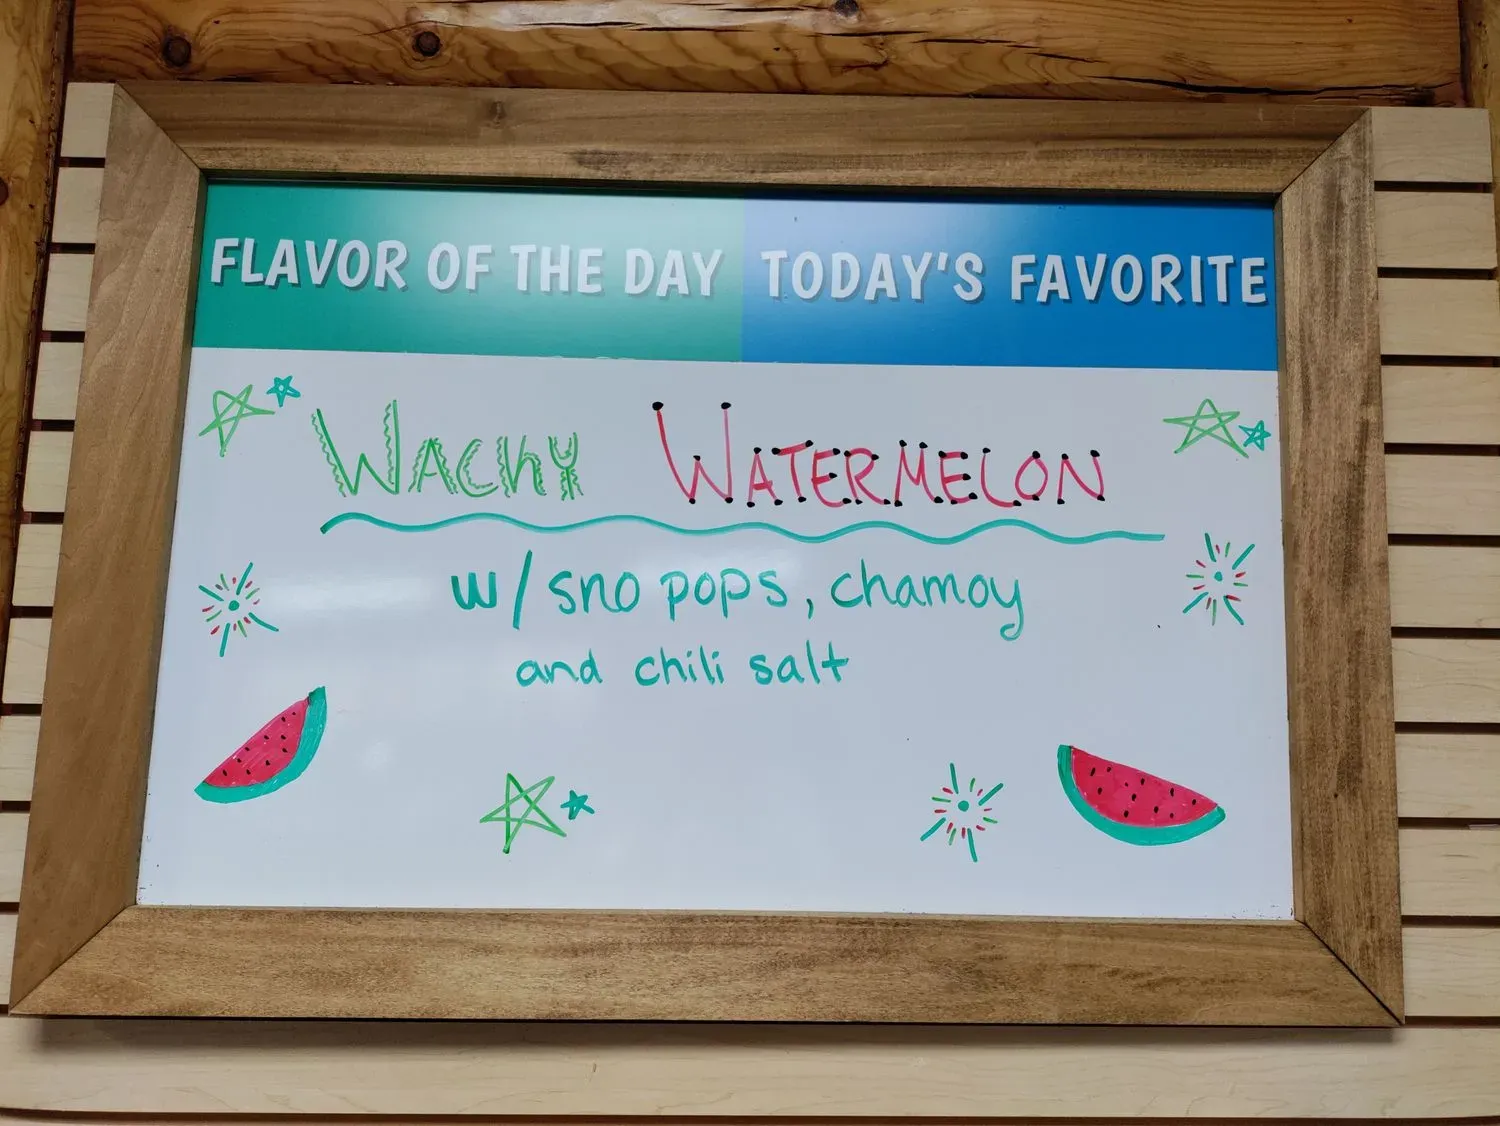 FLAVOR OF THE DAY TODAY'S FAVORITE
WACKY WATERMELON
w/ sno pops, chamoy
and chili salt